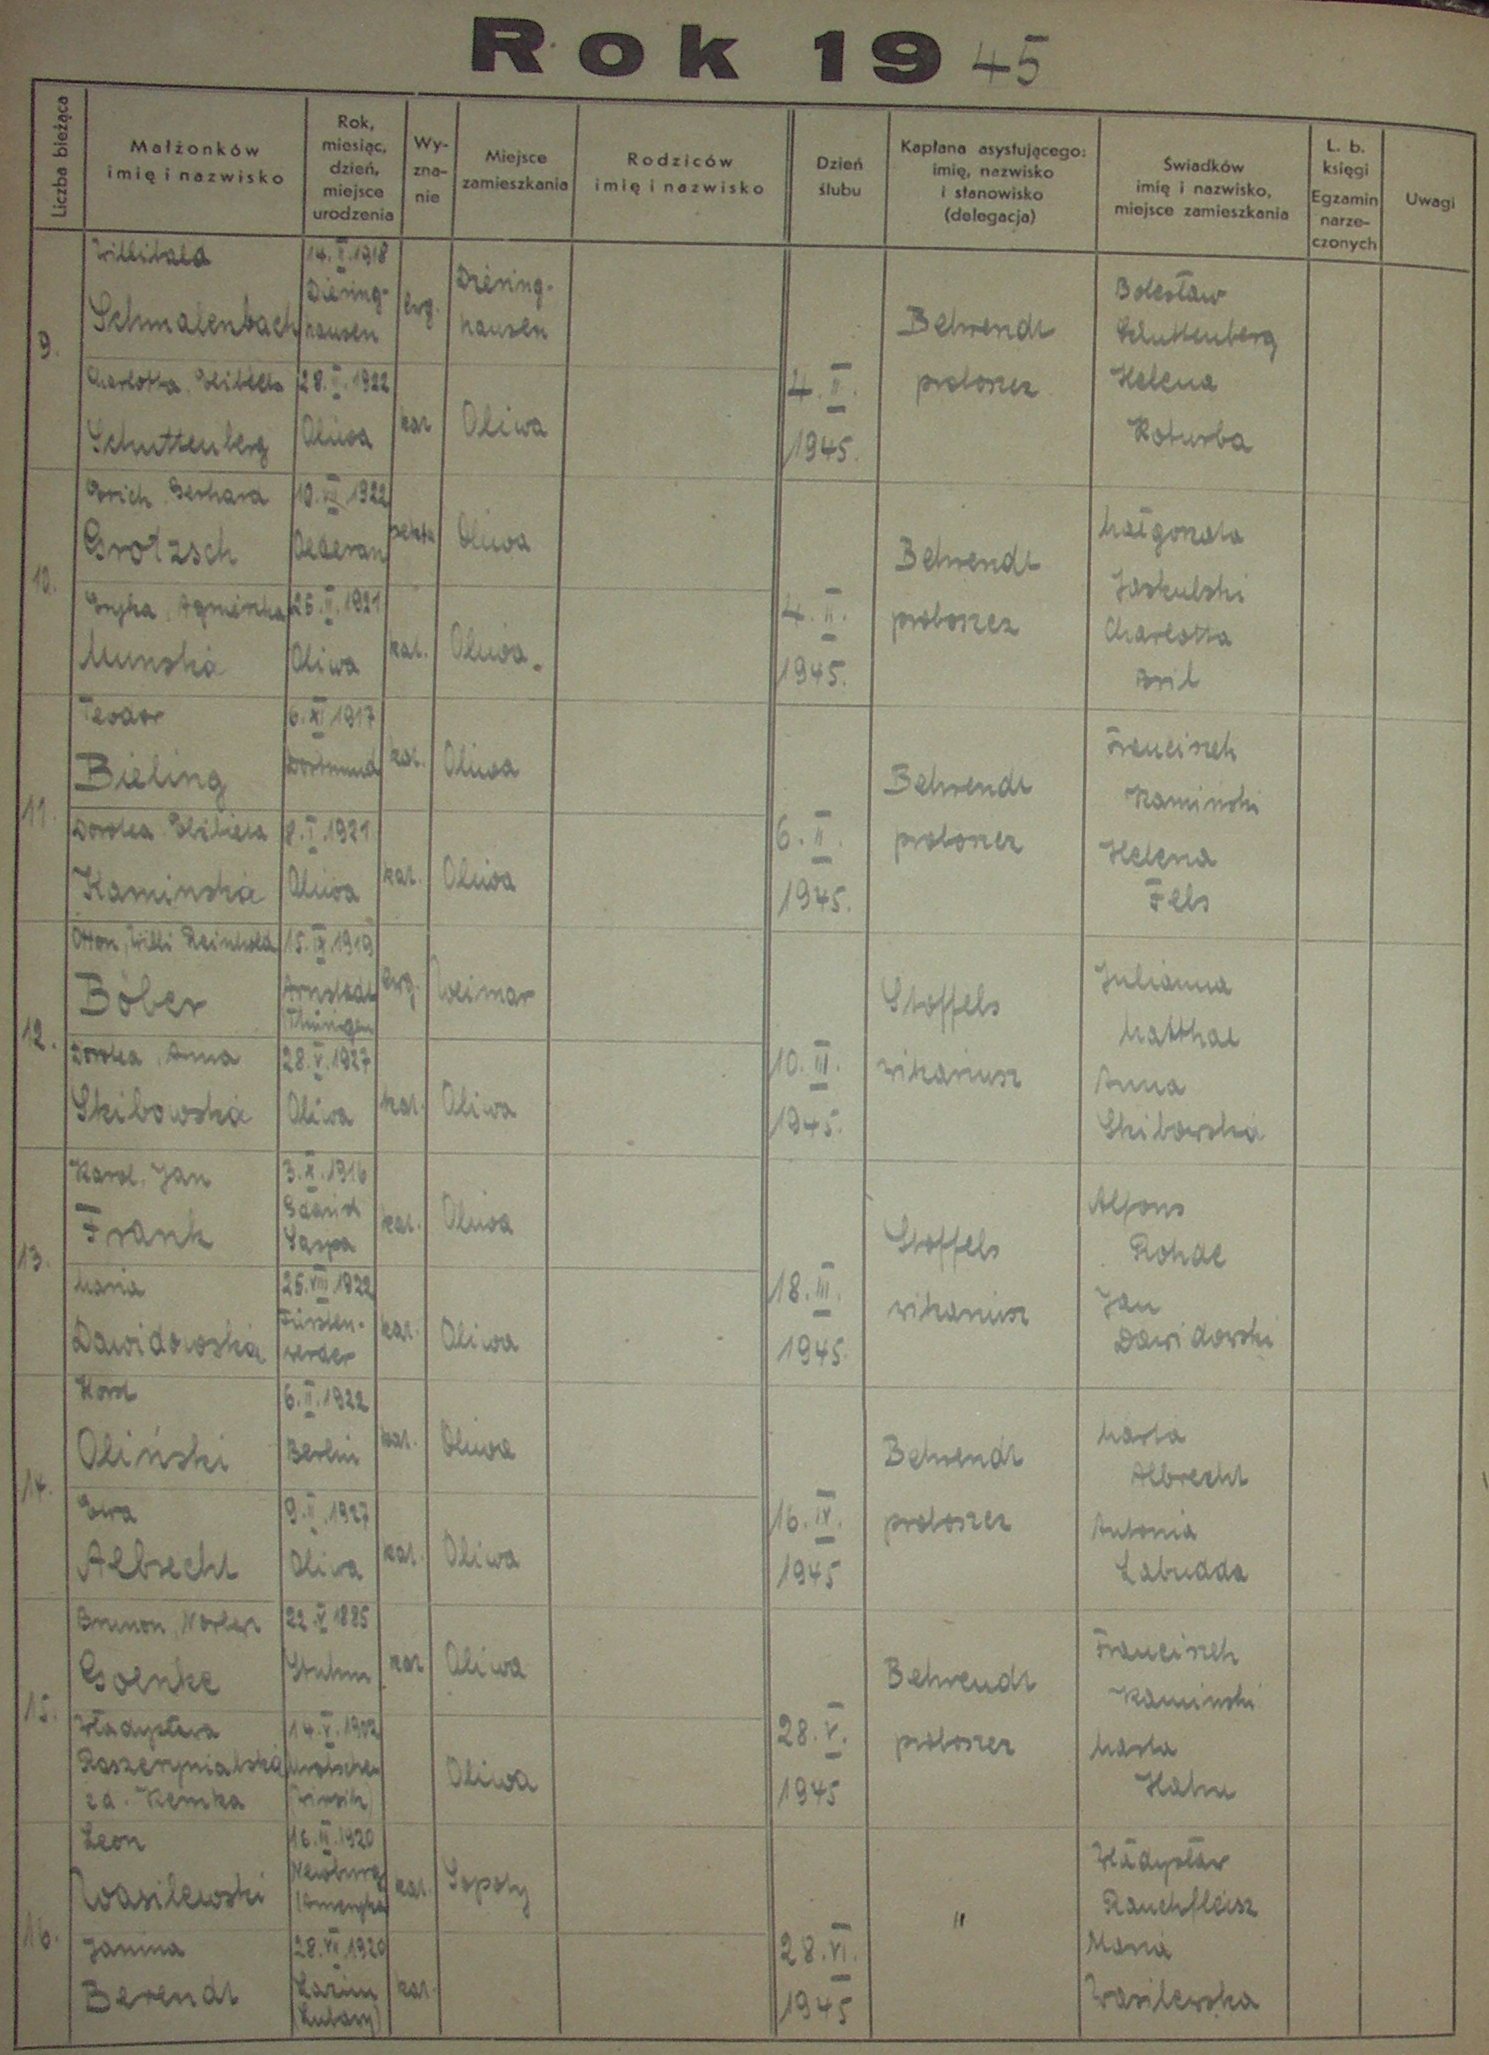 Rok 1945
Liczba bieżąca
Małżonków
imię i nazwisko
Rok,
miesiąc,
dzień,
miejsce
urodzenia
Wy-
zna-
nie
Miejsce
zamieszkania
Rodziców
imię i nazwisko
Dzień
ślubu
Kapłana asystującego:
imię, nazwisko
i stanowisko
(delegacja)
Świadków
imię i nazwisko,
miejsce zamieszkania
L. b.
księgi
Egzamin
narze-
czonych
Uwagi
9.
Willibald
Schmalenbach
14. II. 1918
Diering-
hausen
ewg.
Diering-
hausen
Charlotta, Elżbieta
Schuttenberg
28. II. 1922
Oliwa
kat
Oliwa
4. II.
1945.
Behrendt
proboszcz
Bolesław
Schuttenberg
Helena
Koturba
10.
Erich Gerhard
Grotzsch
10. VII. 1922
Oederan
Oliwa
Eryka, Agnieszka
Munska
26. II. 1921
Oliwa
kat.
Oliwa.
4. II.
1945.
Behrendt
proboszcz
Małgorzata
Jaskulski
Charlotta
11.
Teodor
Bieling
6. XI. 1917
Dortmund
kat.
Oliwa
Dorotea Elżbieta
Kaminska
8. I. 1921
Oliwa
kat.
Oliwa
6. II.
1945.
Behrendt
proboszcz
Franciszek
Kamiński
Helena
Fels
12.
Otton, Willi Reinhold
Böber
15. IX. 1919
Arnstadt
Thüringen
ewg.
Weimar
Dorotea, Anna
Skibowska
28. V. 1927
Oliwa
kat.
Oliwa
10. III.
1945.
Stoffels
wikariusz
Julianna
Matthae
Anna
Skibowska
13.
Karol, Jan
Frank
3. X. 1916
Gdańsk
Saspa
kat.
Oliwa
Maria
Dawidowska
25. VIII. 1922
Fürsten-
werder
kat.
Oliwa
18. III.
1945.
Stoffels
wikariusz
Alfons
Rohde
Jan
Dawidowski
14.
Horst
Oliński
6. II. 1922
Berlin
kat.
Oliwa
Ewa
Albrecht
9. II. 1927
Oliwa
kat.
Oliwa
16. IV.
1945
Behrendt
proboszcz
Marta
Albrecht
Antonia
Labudda
15.
Brunon, Norbert
Goenke
22. V. 1885
Stuhm
kat
Oliwa
Władysława
zd. Kemka
14. V. 1902
Oliwa
28. V.
1945
Behrendt
proboszcz
Franciszek
Kaminski
Marta
Hahn
16.
Leon
Wasilewski
16. II. 1920
Newburg
(Ameryka)
kat.
Sopoty
Janina
Berendt
28. VII. 1920
kat.
28. VI.
1945
"
Władysław
Rauchfleisz
Maria
Wasilewska